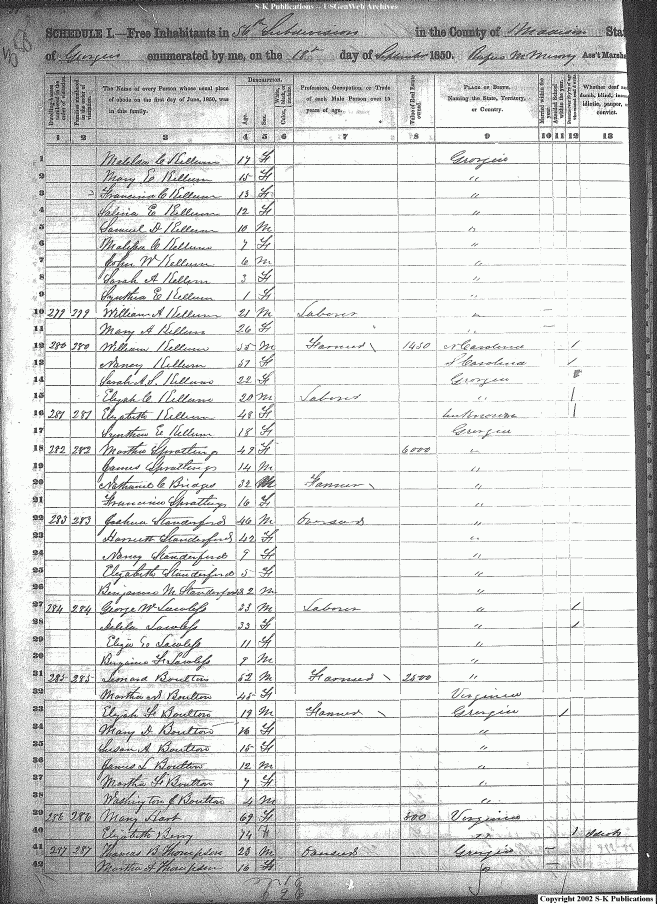 S-K Publications -- USGenWeb Archives
SCHEDULE I.—Free Inhabitants in 36th Subdivision in the County of Madison Sta
of Georgia enumerated by me, on the 18th day of September 1850. Ass't Marsha
Dwelling-houses
Families
The Name of every Person whose usual place of abode on the first day of June, 1850, was in this family.
Description.
Age.
Sex.
White, black, or mulatto.
Color,
Profession, Occupation, or Trade of each Male Person over 15 years of age.
Value of Real Estate owned.
Place of Birth. Naming the State, Territory, or Country.
Married within the year.
Attended School within the year.
Whether deaf and dumb, blind, insane, idiotic, pauper, or convict.
1 2 3 4 5 6 7 8 9 10 11 12 13
1 Matilda C Kellum 17 F Georgia
2 Mary E Kellum 15 F "
3 Francina C Kellum 13 F "
4 Salina E Kellum 12 F "
5 Samuel D Kellum 10 M "
6 Malissa C Kellum 7 F "
7 John W Kellum 6 M "
8 Sarah A Kellum 3 F "
9 Synthia E Kellum 1 F "
10 279 279 William A Kellum 21 M Laborer "
11 Mary A Kellum 26 F "
12 280 280 William Kellum 55 M Farmer 1450 N Carolina 1
13 Nancy Kellum 57 F S Carolina 1
14 Sarah A.S. Kellum 22 F Georgia
15 Elijah C Kellum 20 M Laborer " 1
16 281 281 Elizabeth Kellum 48 F unknown 1
17 Synthia E Kellum 18 F Georgia
18 282 282 Martha Spratlings 49 F 6000 "
19 James Spratlings 14 M "
20 Nathaniel C Bridges 32 M Farmer "
21 Francina Spratlings 16 F "
22 283 283 Joshua Standerford 46 M Overseer "
23 Harriett Standerford 42 F "
24 Nancy Standerford 9 F "
25 Elizabeth Standerford 5 F "
26 Benjamin M Standerford 2 M
27 284 284 George W Lawless 23 M Laborer " 1
28 Lawless 33 F " 1
29 Eliza Lawless 11 F "
30 Benjamin F Lawless 8 M "
31 285 285 Leonard Boulton 52 M Farmer 2500 "
32 Martha Boulton 45 F Virginia
33 Elijah F Boulton 19 M Farmer Georgia 1
34 Mary D Boulton 16 F "
35 Susan A Boulton 15 F "
36 James L Boulton 12 M "
37 Martha F Boulton 7 F "
38 Washington C Boulton 4 M "
39 286 286 Mary Hart 69 F 800 Virginia
40 Elizabeth Berry 74 F " 1
41 287 287 Thomas B Thompson 23 M Overseer Georgia
42 Martha A Thompson 16 F "
Copyright 2002 S-K Publications